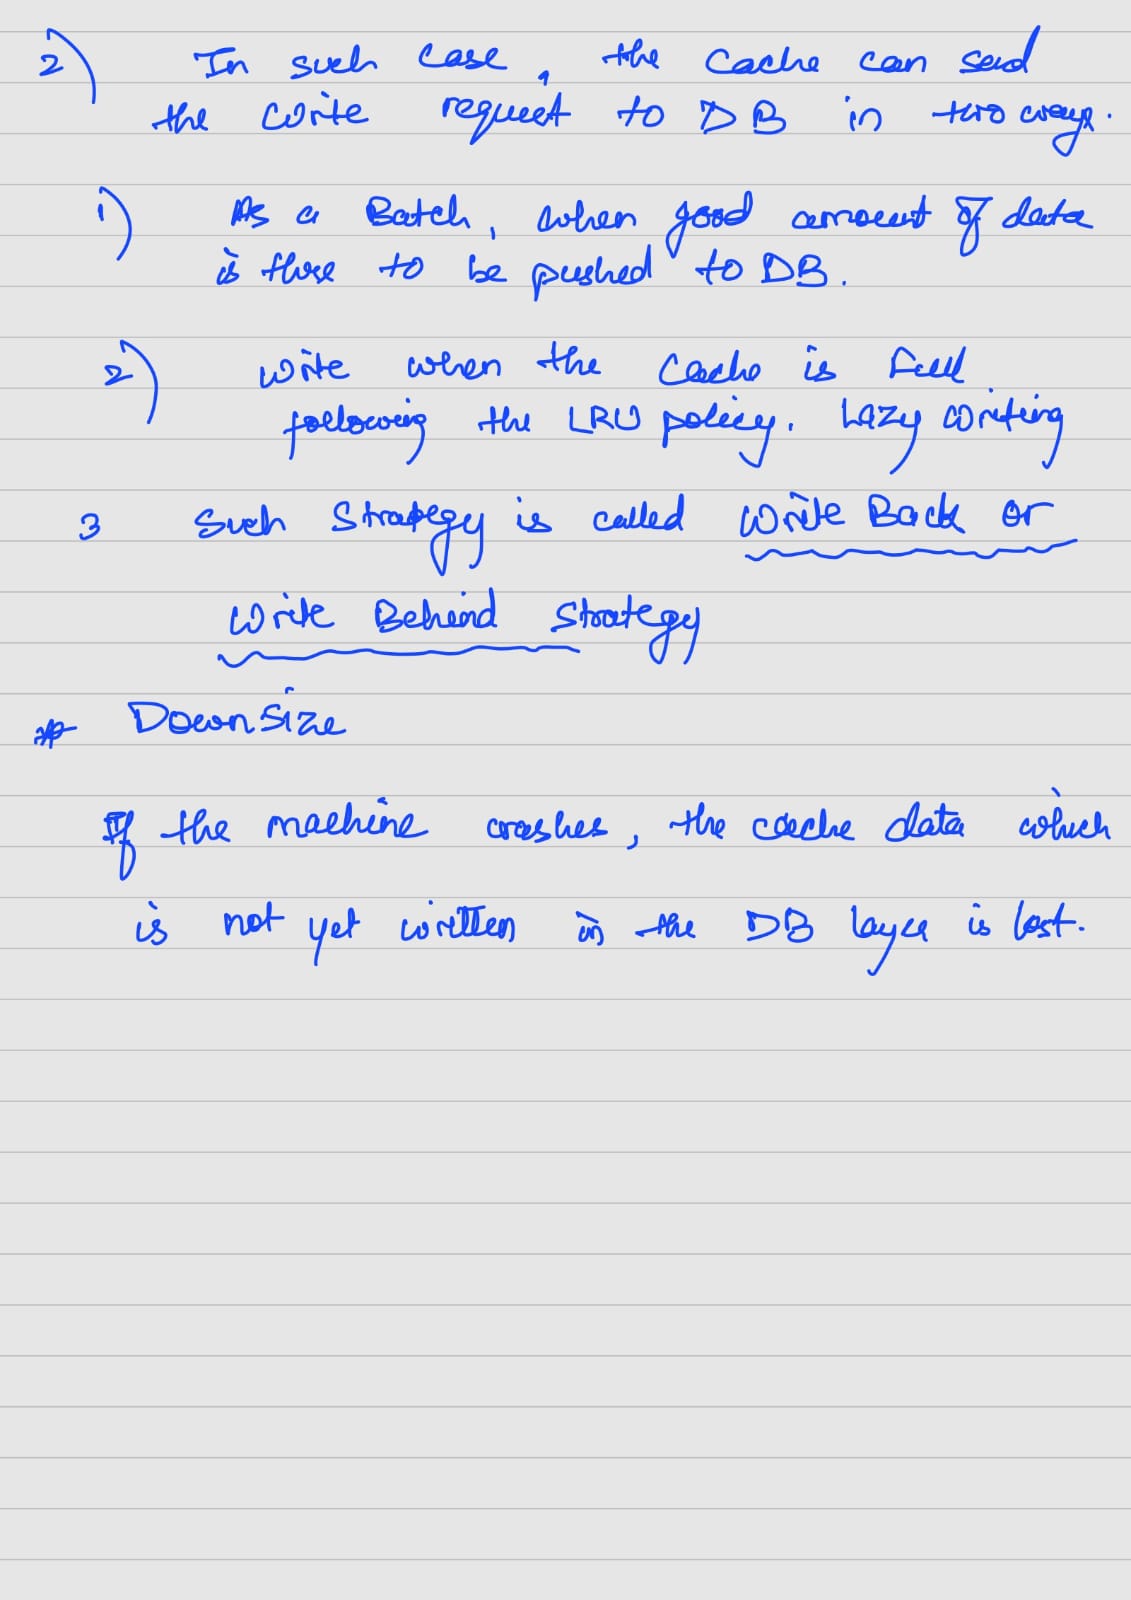 2) In such case, the Cache can send
the write request to DB in two ways.
1) As a Batch, when good amount of data
is there to be pushed to DB.
2) Write when the Cache is full
following the LRU policy. Lazy writing
3 Such Strategy is called Write Back or
Write Behind Strategy
* Downsize
If the machine crashes, the cache data which
is not yet written in the DB layer is lost.